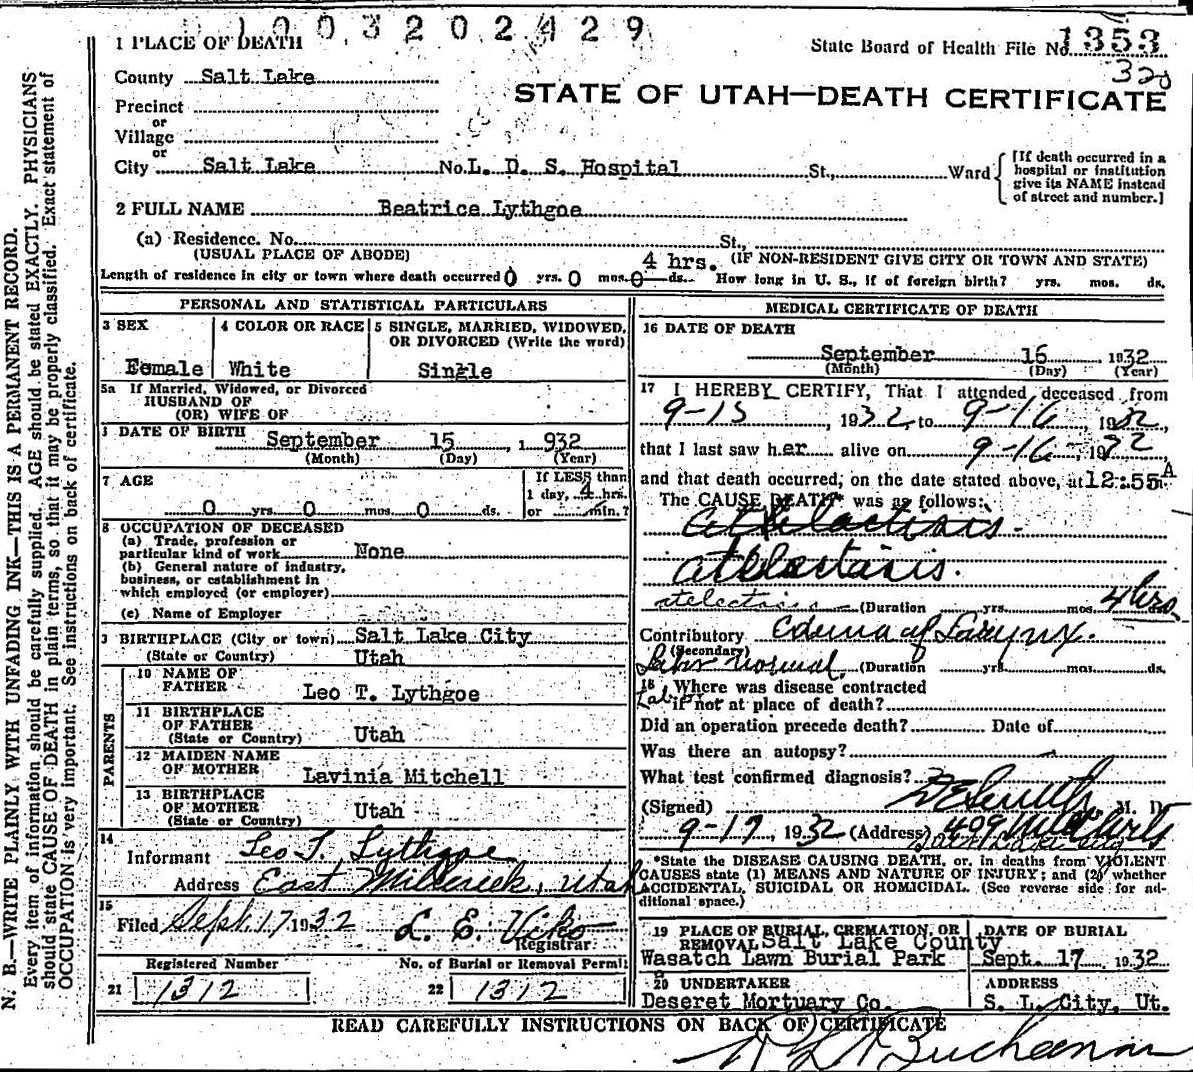 1003202429
1 PLACE OF DEATH
State Board of Health File No. 1353
County Salt Lake
320
STATE OF UTAH—DEATH CERTIFICATE
Precinct
or
Village
or
City Salt Lake No. L. D. S. Hospital St., Ward
[If death occurred in a hospital or institution give its NAME instead of street and number.]
2 FULL NAME Beatrice Lythgoe
(a) Residence. No. St.,
(USUAL PLACE OF ABODE) 4 hrs. (IF NON-RESIDENT GIVE CITY OR TOWN AND STATE)
Length of residence in city or town where death occurred 0 yrs. 0 mos. 0 ds. How long in U. S., if of foreign birth? yrs. mos. ds.
PERSONAL AND STATISTICAL PARTICULARS
3 SEX
Female
4 COLOR OR RACE
White
5 SINGLE, MARRIED, WIDOWED, OR DIVORCED (Write the word)
Single
5a If Married, Widowed, or Divorced
HUSBAND OF
(OR) WIFE OF
DATE OF BIRTH September 15, 1932
(Month) (Day) (Year)
7 AGE
0 yrs. 0 mos. 0 ds.
If LESS than
1 day, 4 hrs.
or min.?
8 OCCUPATION OF DECEASED
(a) Trade, profession or
particular kind of work None
(b) General nature of industry,
business, or establishment in
which employed (or employer)
(c) Name of Employer
BIRTHPLACE (City or town) Salt Lake City
(State or Country) Utah
PARENTS
10 NAME OF
FATHER Leo T. Lythgoe
11 BIRTHPLACE
OF FATHER
(State or Country) Utah
12 MAIDEN NAME
OF MOTHER Lavinia Mitchell
13 BIRTHPLACE
OF MOTHER
(State or Country) Utah
14
Informant Leo T. Lythgoe
Address East Millcreek, Utah
15
Filed Sept. 17 1932 L. E. Viko
Registrar
Registered Number
21 1312
No. of Burial or Removal Permit
22 1312
MEDICAL CERTIFICATE OF DEATH
16 DATE OF DEATH
September 16 1932
(Month) (Day) (Year)
17 I HEREBY CERTIFY, That I attended deceased from
9-15, 1932, to 9-16, 1932,
that I last saw her alive on 9-16-, 1932
and that death occurred, on the date stated above, at 12:55 A m.
The CAUSE DEATH* was as follows:
atelectasis.
atelectasis.
atelectasis (Duration yrs. mos. 4 hrs.
Contributory Edema of Larynx.
(Secondary)
Labor normal. (Duration yrs. mos. ds.
18 Where was disease contracted
if not at place of death?
Did an operation precede death? Date of
Was there an autopsy?
What test confirmed diagnosis?
(Signed) M. D.
9-17, 1932 (Address) 409
Salt Lake City
*State the DISEASE CAUSING DEATH, or, in deaths from VIOLENT
CAUSES state (1) MEANS AND NATURE OF INJURY; and (2) whether
ACCIDENTAL, SUICIDAL OR HOMICIDAL. (See reverse side for ad-
ditional space.)
19 PLACE OF BURIAL, CREMATION, OR
REMOVAL Salt Lake County
Wasatch Lawn Burial Park
DATE OF BURIAL
Sept. 17 1932
20 UNDERTAKER
Deseret Mortuary Co.
ADDRESS
S. L. City, Ut.
READ CAREFULLY INSTRUCTIONS ON BACK OF CERTIFICATE
Bucheenan
N. B.—WRITE PLAINLY WITH UNFADING INK—THIS IS A PERMANENT RECORD.
Every item of information should be carefully supplied. AGE should be stated EXACTLY. PHYSICIANS
should state CAUSE OF DEATH in plain terms, so that it may be properly classified. Exact statement of
OCCUPATION is very important. See instructions on back of certificate.